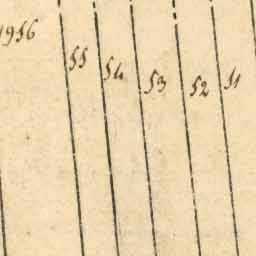 1956
55
54
53
52
51